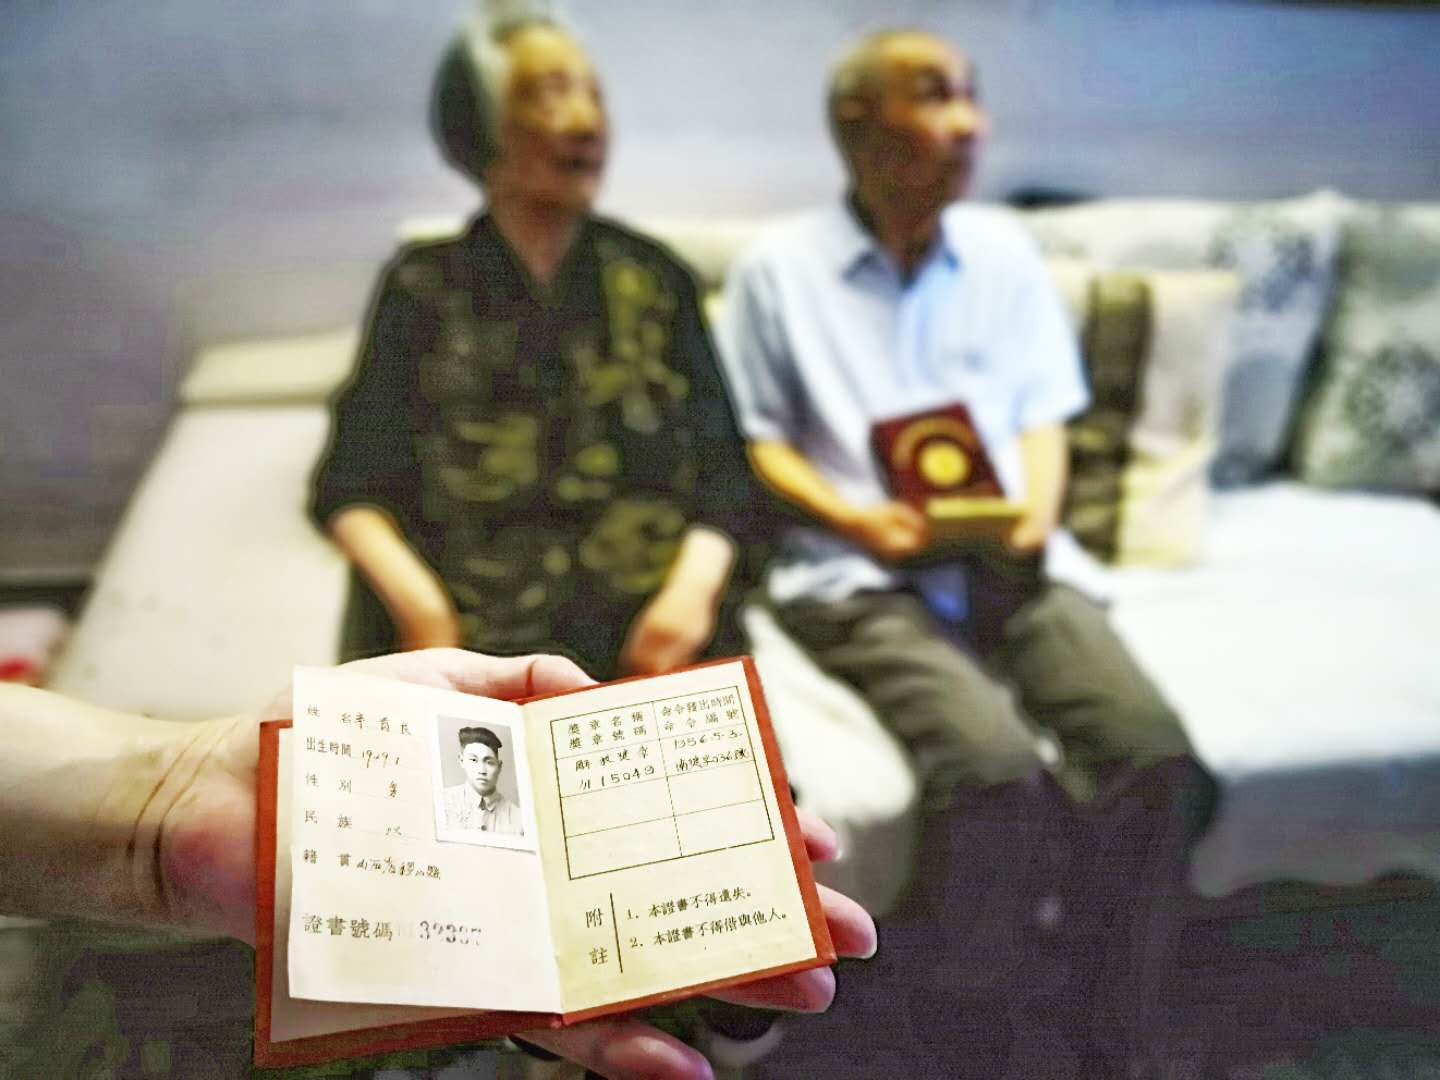 姓 名 李首民
出生時間 1929.1
性 别 男
民 族 汉
籍 貫 山西省稷山縣
證書號碼
獎章名稱 命令發出時間
獎章號碼 命令編號
解放獎章 1956.5.3.
川15049
附註
1. 本證書不得遺失。
2. 本證書不得借與他人。